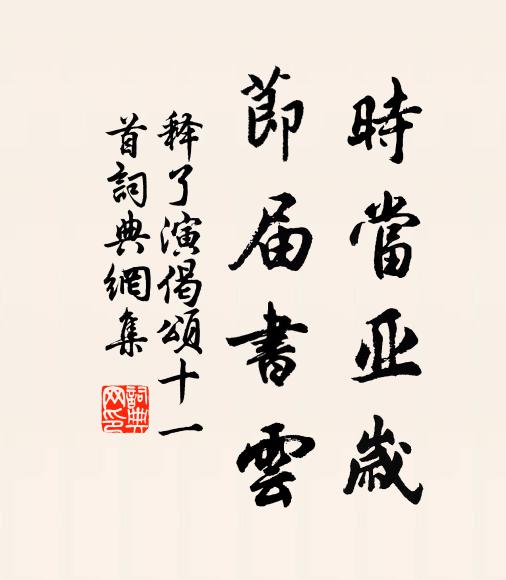 時當亚歲
節届書雲
释了演偈頌十一
首詞典網集
詞典
网印